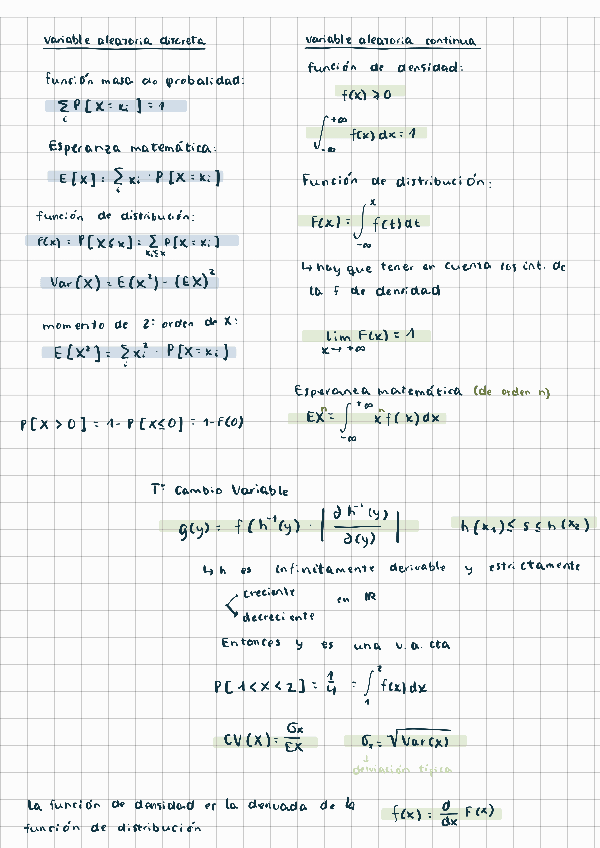 variable aleatoria discreta
función masa de probalidad:
∑ P[X=xi] = 1
i
Esperanza matemática:
E[X] = ∑ xi · P[X=xi]
i
función de distribución:
F(x) = P[X≤x] = ∑ P[X=xi]
xi≤x
Var(X) = E(X²) - (EX)²
momento de 2º orden de X:
E[X²] = ∑ xi² · P[X=xi]
i
P[X>0] = 1- P[X≤0] = 1-F(0)
variable aleatoria continua
función de densidad:
f(x) ≥ 0
∫ +∞ -∞ f(x) dx = 1
Función de distribución:
F(x) = ∫ x -∞ f(t) dt
↳ hay que tener en cuenta los int. de
la f de densidad
lim F(x) = 1
x→+∞
Esperanza matemática (de orden n)
EXⁿ = ∫ +∞ -∞ xⁿ f(x) dx
Tª Cambio Variable
g(y) = f(h⁻¹(y) · | ∂h⁻¹(y) / ∂(y) | h(x₁) ≤ s ≤ h(x₂)
↳ h es infinitamente derivable y estrictamente
creciente
en IR
decreciente
Entonces y es una v.a. cta
P[1<X<2] = 1/4 = ∫ 2 1 f(x) dx
CV(X) = σx / EX σx = √Var(x)
↓
desviación típica
La función de densidad es la derivada de la
función de distribución
f(x) = d/dx F(x)